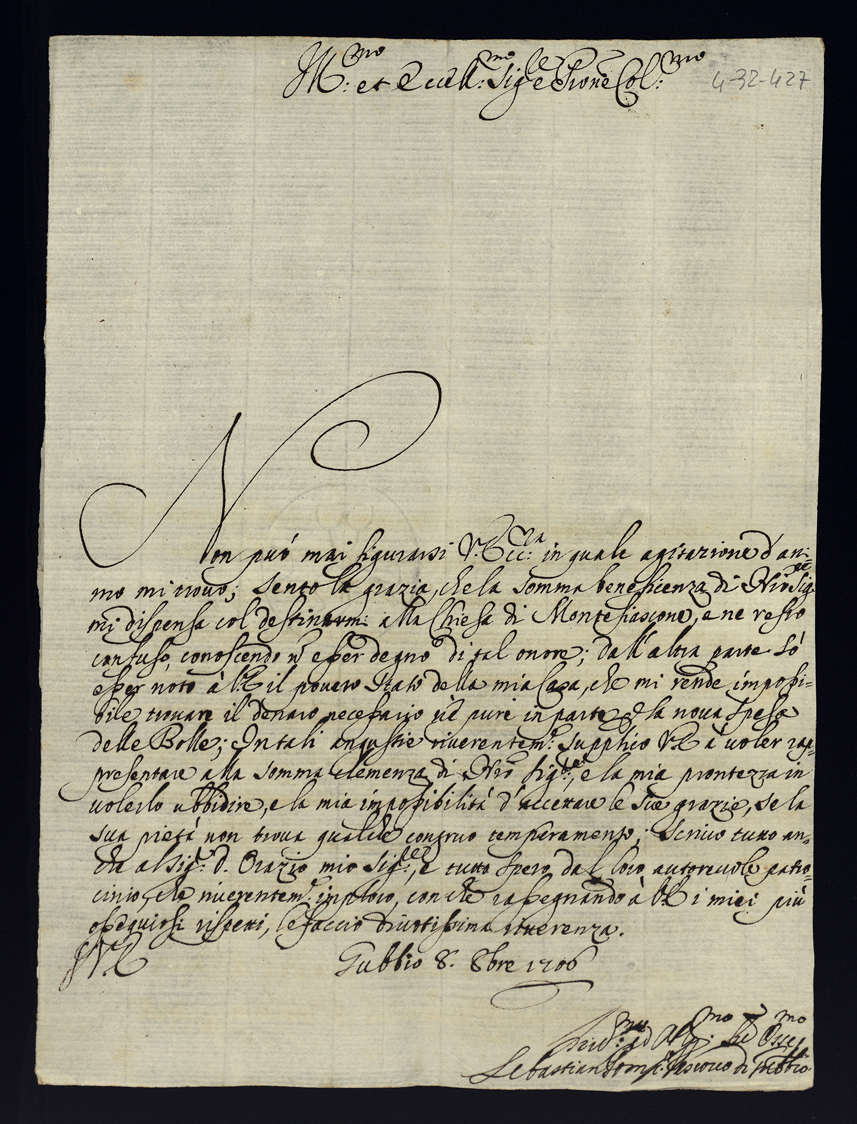 Ill:mo et Ecc:mo Sig:re e P̃rone Col:mo 4-32-427
Non può mai figurarsi V. Ecc:za in quale agitazione d'ani-
mo mi trovo; sento la grazia, che la somma beneficenza di Nr̃o Sig:re
mi dispensa col destinarmi alla Chiesa di Montefiascone, e ne resto
confuso, conoscendo ñ esser degno di tal onore; dall'altra parte sò
esser noto à VE il povero stato della mia Casa, che mi rende impossi-
bile trovare il denaro necessario nè pure in parte p la nova spesa
delle Bolle; In tali angustie riverentem:te supplico VE à voler rap-
presentare alla somma clemenza di Nr̃o Sig:re, e la mia prontezza in
volerlo ubbidire, e la mia impossibilità d'accettare le sue grazie, se la
sua pietà non trova qualche congruo temperamento; Scrivo tutto an-
che al Sig:r D. Orazio mio Sig:re, e tutto spero dal loro autorevole patro-
cinio, che riverentem:te imploro, con che rassegnando à VE i miei più
ossequiosi rispetti, le faccio divotissima riverenza.
VE
Gubbio 8. 8bre 1706
Sebastiano Pomp: Vescovo di Gubbio